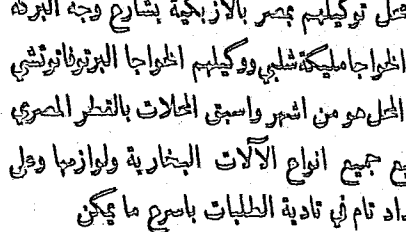 محل توكيلهم بمصر بالازبكية بشارع وجه البركة
الخواجا مليكة شلبي ووكيلهم الخواجا البرتو
المحل هو من اشهر واسبق المحلات بالقطر المصري
جميع انواع الآلات البخارية ولوازمها وعلى
تام في تادية الطلبات باسرع ما يمكن